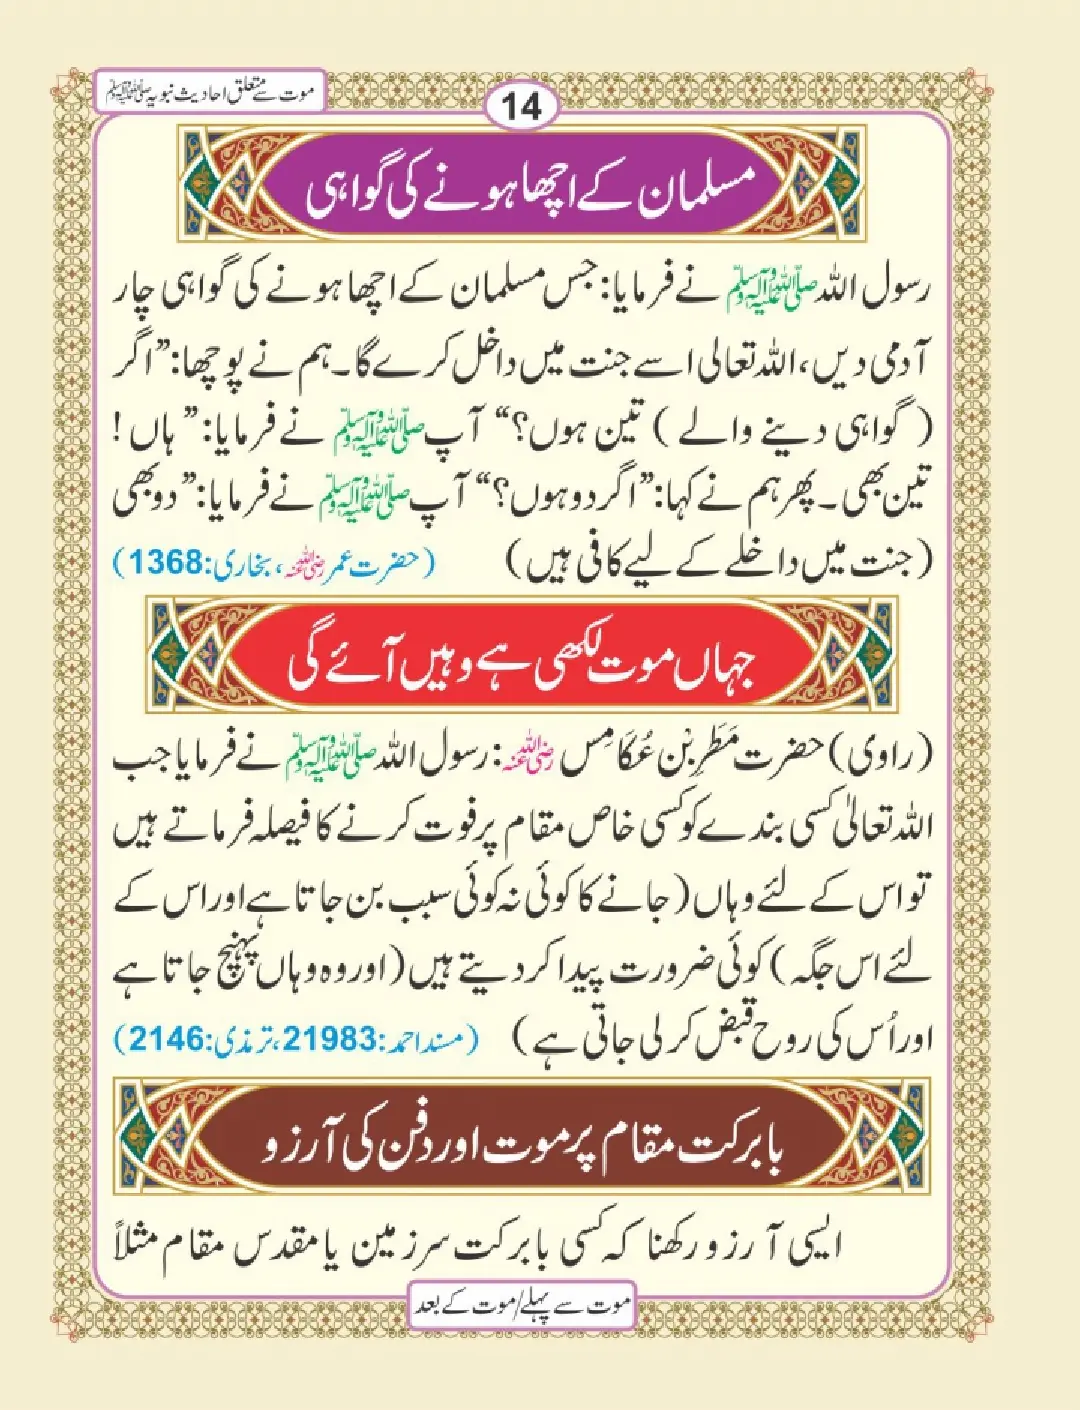 موت سے متعلق احادیث نبویہ ﷺ
14
مسلمان کے اچھا ہونے کی گواہی
رسول اللہ ﷺ نے فرمایا: جس مسلمان کے اچھا ہونے کی گواہی چار
آدمی دیں، اللہ تعالی اسے جنت میں داخل کرے گا۔ ہم نے پوچھا: ”اگر
(گواہی دینے والے) تین ہوں؟“ آپ ﷺ نے فرمایا: ”ہاں!
تین بھی۔ پھر ہم نے کہا: ”اگر دو ہوں؟“ آپ ﷺ نے فرمایا: ”دو بھی
(جنت میں داخلے کے لیے کافی ہیں) (حضرت عمر رضی اللہ عنہ، بخاری: 1368)
جہاں موت لکھی ہے وہیں آئے گی
(راوی) حضرت مَطَرِ بْن عُکَامِس رضی اللہ عنہ: رسول اللہ ﷺ نے فرمایا جب
اللہ تعالیٰ کسی بندے کو کسی خاص مقام پر فوت کرنے کا فیصلہ فرماتے ہیں
تو اس کے لئے وہاں (جانے کا کوئی نہ کوئی سبب بن جاتا ہے اور اس کے
لئے اس جگہ) کوئی ضرورت پیدا کر دیتے ہیں (اور وہ وہاں پہنچ جاتا ہے
اور اُس کی روح قبض کر لی جاتی ہے) (مسند احمد: 21983، ترمذی: 2146)
بابرکت مقام پر موت اور دفن کی آرزو
ایسی آرزو رکھنا کہ کسی بابرکت سرزمین یا مقدس مقام مثلاً
موت سے پہلے/موت کے بعد